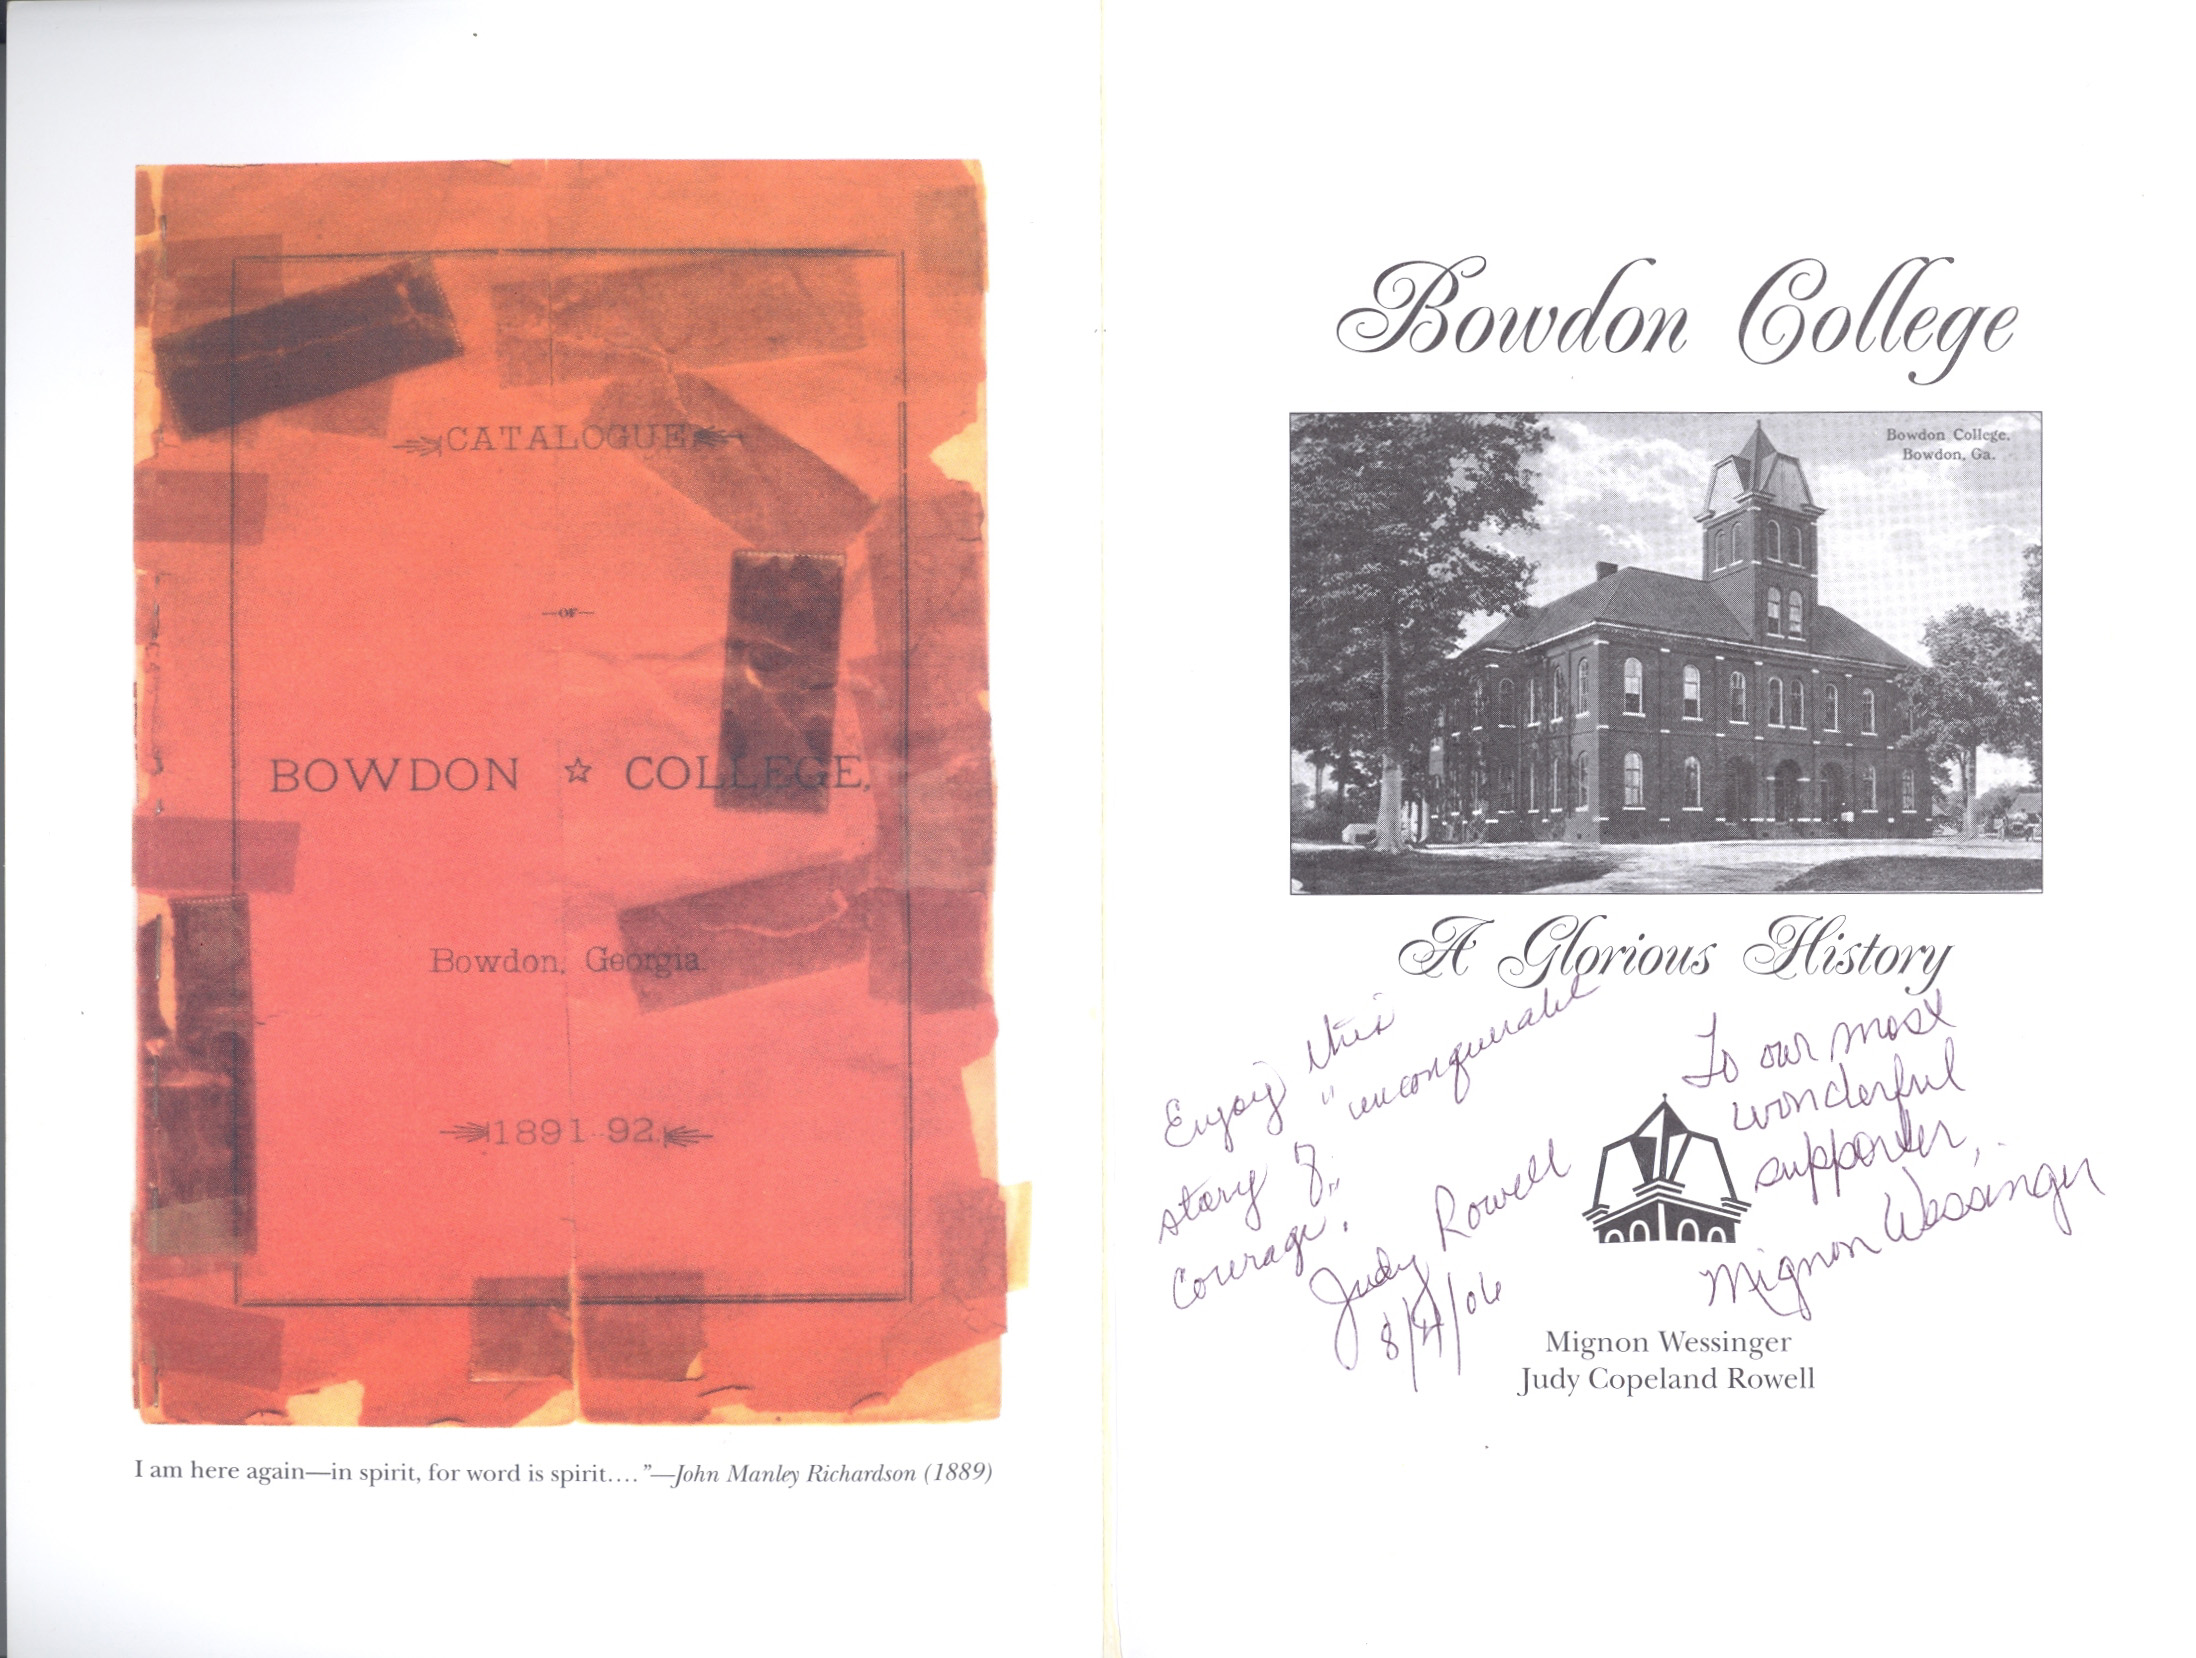 CATALOGUE
—OF—
BOWDON ☆ COLLEGE,
Bowdon, Georgia.
1891-92.
I am here again—in spirit, for word is spirit…."—John Manley Richardson (1889)
Bowdon College
Bowdon College,
Bowdon, Ga.
A Glorious History
Enjoy this
"unconquerable
story of
courage".
Judy Rowell
8/4/06
To our most
wonderful
supporter,
Mignon Wessinger
Mignon Wessinger
Judy Copeland Rowell